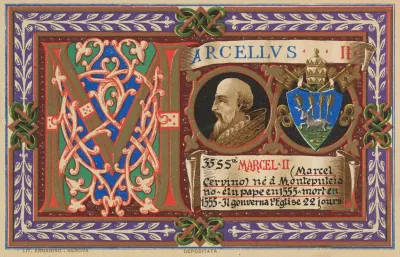 MARCELLVS · II
355 SS MARCEL·II
Marcel
Cervino né à Montepulcia
no-élu pape en 1555-mort en
1555-Il gouverna l'Eglise 22 jours
LIT. ARMANINO - GENOVA
DEPOSITATA